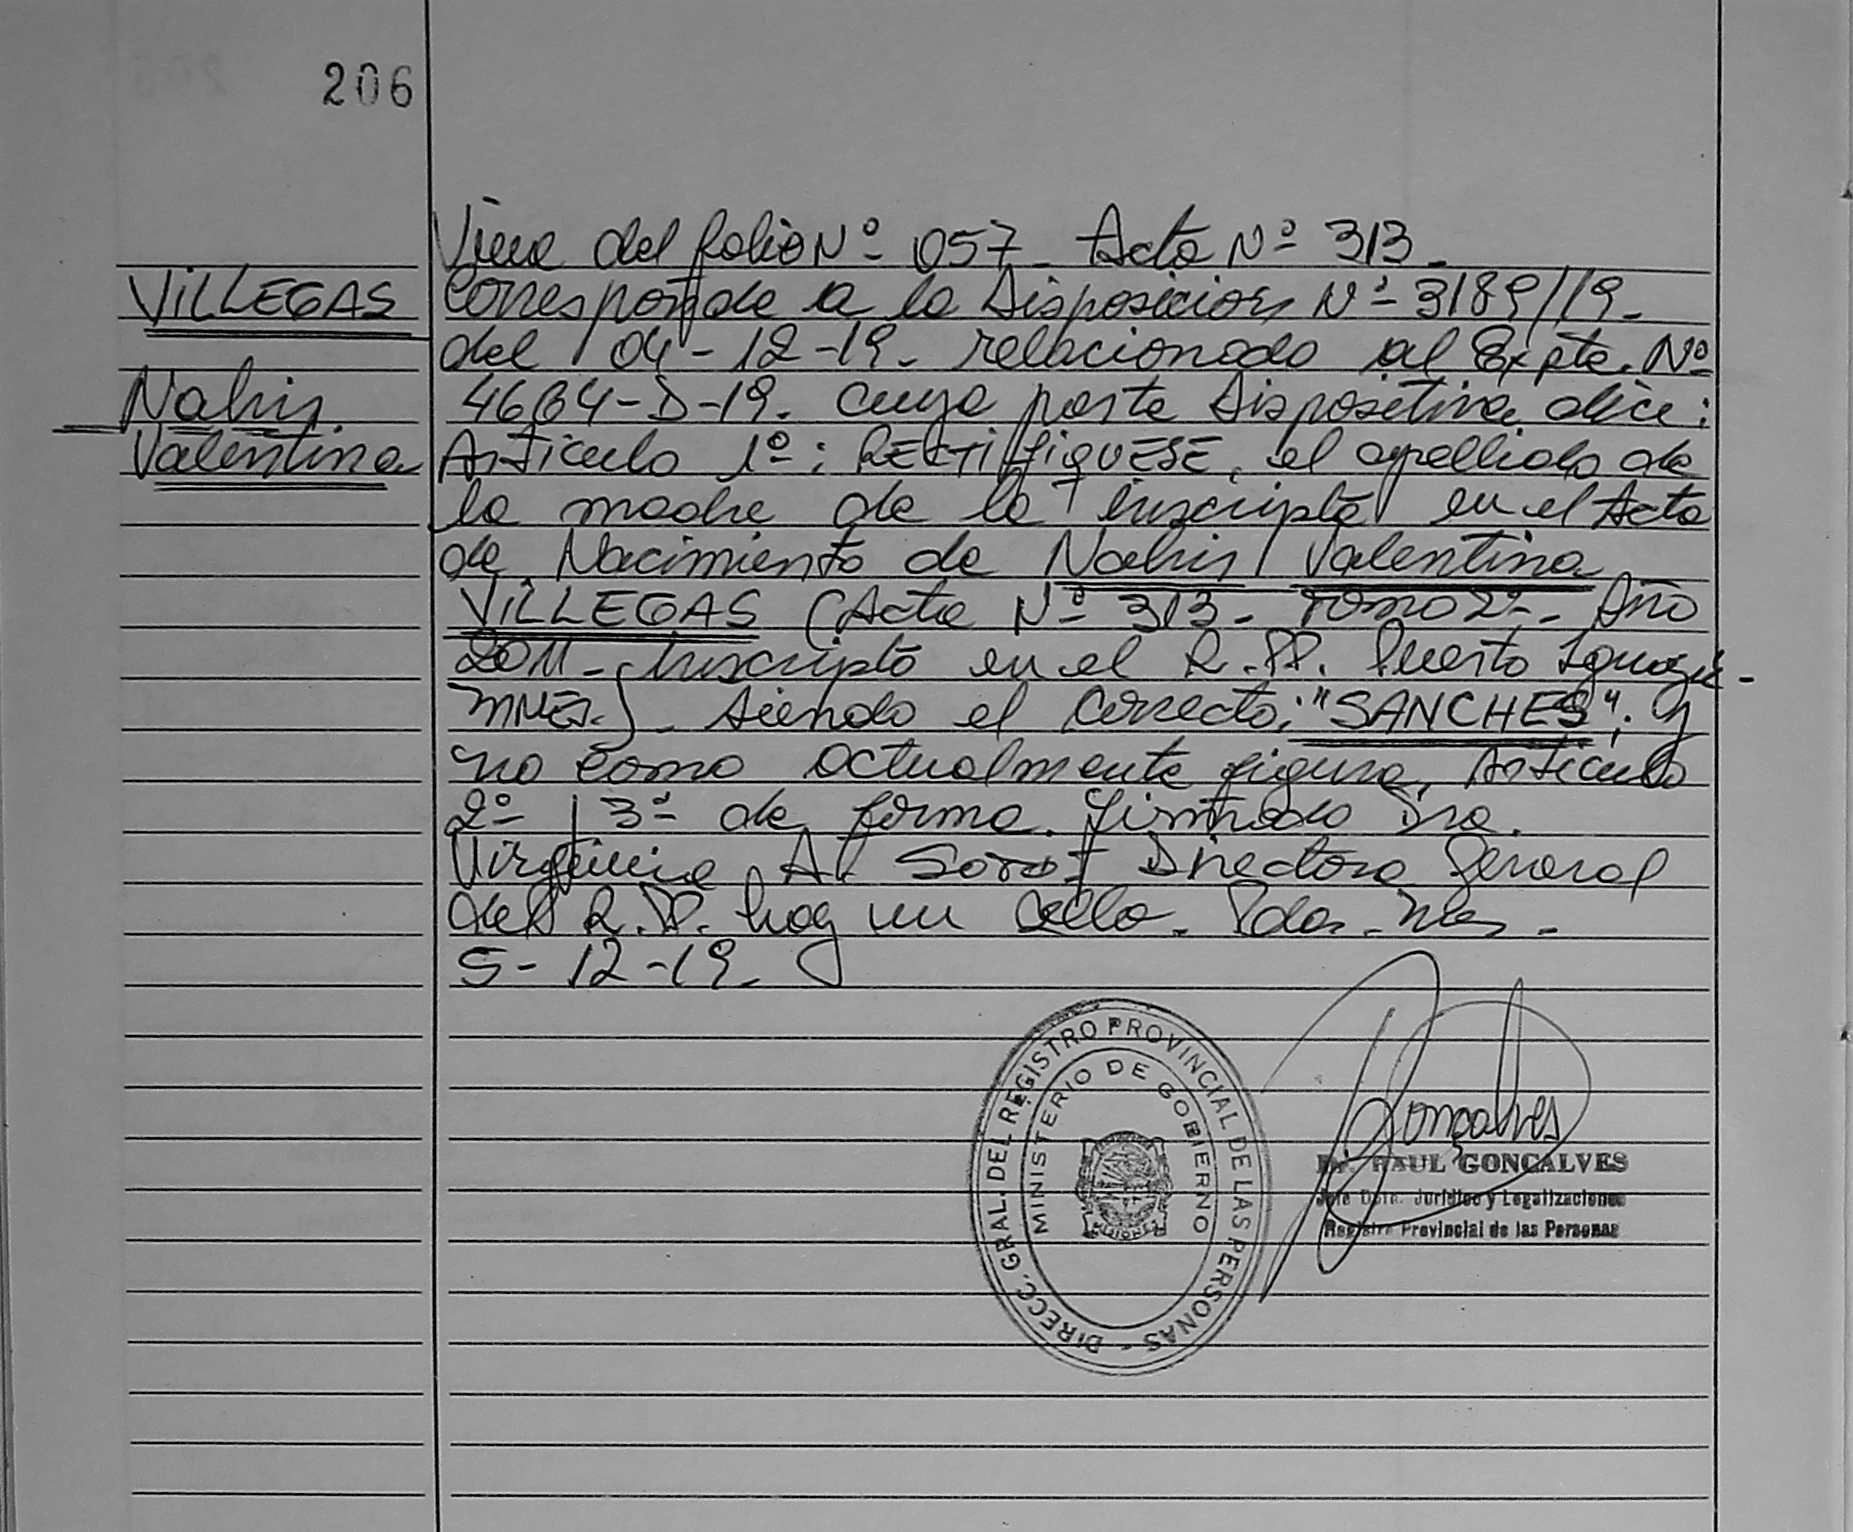 206
VILLEGAS
Nahir
Valentina
Viene del folio Nº 057 - Acta Nº 313 -
Corresponde a la Disposicion Nº 3189/19 -
del 04-12-19 - relacionado al Expte. Nº
4634-D-19. cuya parte dispositiva dice:
Articulo 1º: RECTIFIQUESE, el apellido de
la madre de la inscripta en el Acta
de Nacimiento de Nahir Valentina
VILLEGAS (Acta Nº 313 - Tomo 2º - Año
2011 - Inscripto en el R.PP. Puerto Iguazú -
MNES.) - Siendo el correcto: "SANCHES", y
no como actualmente figura, Articulo
2º y 3º de forma. Firmado Dra.
Virginia Directora General
del R.PP. hay un sello. Pdas. Mes. -
5-12-19.
DIRECC. GRAL. DEL REGISTRO PROVINCIAL DE LAS PERSONAS -
MINISTERIO DE GOBIERNO
MISIONES
Gonçalves
Dr. RAUL GONÇALVES
Jefe Dpto. Jurídico y Legalizaciones
Registro Provincial de las Personas